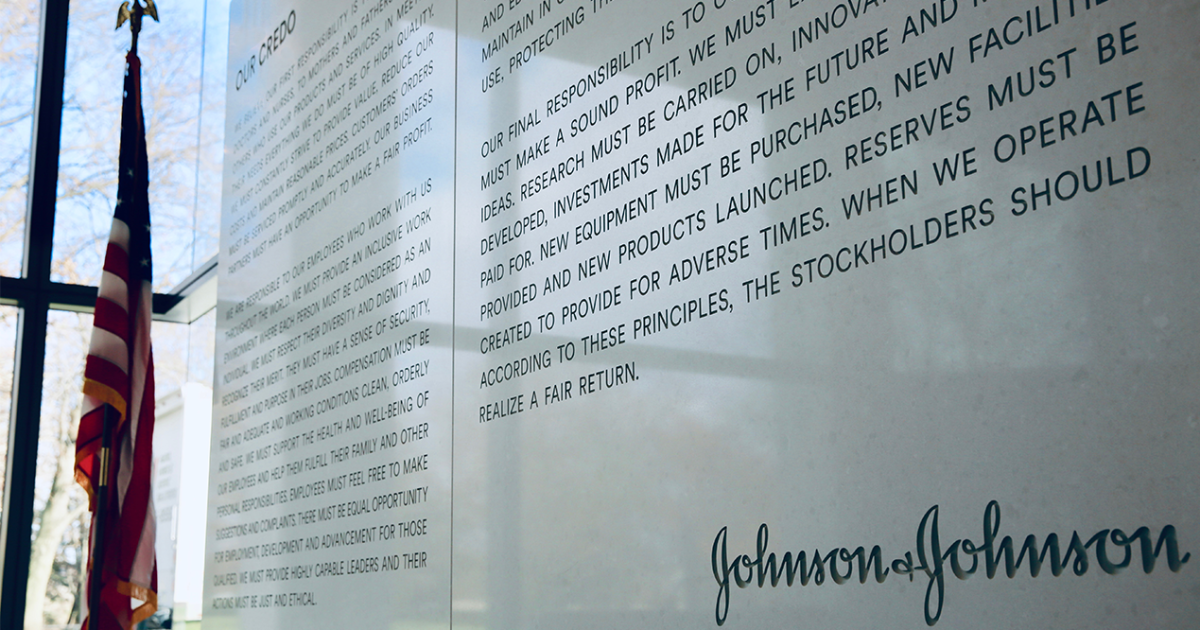 OUR CREDO
WE BELIEVE OUR FIRST RESPONSIBILITY IS
DOCTORS AND NURSES, TO MOTHERS AND FATHERS
OTHERS WHO USE OUR PRODUCTS AND SERVICES. IN MEETING
THEIR NEEDS EVERYTHING WE DO MUST BE OF HIGH QUALITY.
WE MUST CONSTANTLY STRIVE TO PROVIDE VALUE, REDUCE OUR
COSTS AND MAINTAIN REASONABLE PRICES. CUSTOMERS' ORDERS
MUST BE SERVICED PROMPTLY AND ACCURATELY. OUR BUSINESS
PARTNERS MUST HAVE AN OPPORTUNITY TO MAKE A FAIR PROFIT.
WE ARE RESPONSIBLE TO OUR EMPLOYEES WHO WORK WITH US
THROUGHOUT THE WORLD. WE MUST PROVIDE AN INCLUSIVE WORK
ENVIRONMENT WHERE EACH PERSON MUST BE CONSIDERED AS AN
INDIVIDUAL. WE MUST RESPECT THEIR DIVERSITY AND DIGNITY AND
RECOGNIZE THEIR MERIT. THEY MUST HAVE A SENSE OF SECURITY,
FULFILLMENT AND PURPOSE IN THEIR JOBS. COMPENSATION MUST BE
FAIR AND ADEQUATE AND WORKING CONDITIONS CLEAN, ORDERLY
AND SAFE. WE MUST SUPPORT THE HEALTH AND WELL-BEING OF
OUR EMPLOYEES AND HELP THEM FULFILL THEIR FAMILY AND OTHER
PERSONAL RESPONSIBILITIES. EMPLOYEES MUST FEEL FREE TO MAKE
SUGGESTIONS AND COMPLAINTS. THERE MUST BE EQUAL OPPORTUNITY
FOR EMPLOYMENT, DEVELOPMENT AND ADVANCEMENT FOR THOSE
QUALIFIED. WE MUST PROVIDE HIGHLY CAPABLE LEADERS AND THEIR
ACTIONS MUST BE JUST AND ETHICAL.
AND
MAINTAIN IN
USE, PROTECTING
OUR FINAL RESPONSIBILITY IS TO
MUST MAKE A SOUND PROFIT. WE MUST
IDEAS. RESEARCH MUST BE CARRIED ON,
DEVELOPED, INVESTMENTS MADE FOR THE FUTURE AND
PAID FOR. NEW EQUIPMENT MUST BE PURCHASED, NEW FACILITIES
PROVIDED AND NEW PRODUCTS LAUNCHED. RESERVES MUST BE
CREATED TO PROVIDE FOR ADVERSE TIMES. WHEN WE OPERATE
ACCORDING TO THESE PRINCIPLES, THE STOCKHOLDERS SHOULD
REALIZE A FAIR RETURN.
Johnson & Johnson